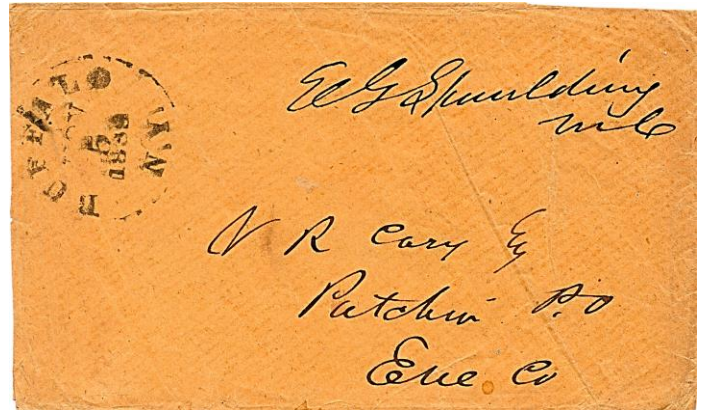 BUFFALO N.Y.
E G Spaulding
M C
V R Cary Esq
Patchin P.O
Erie Co